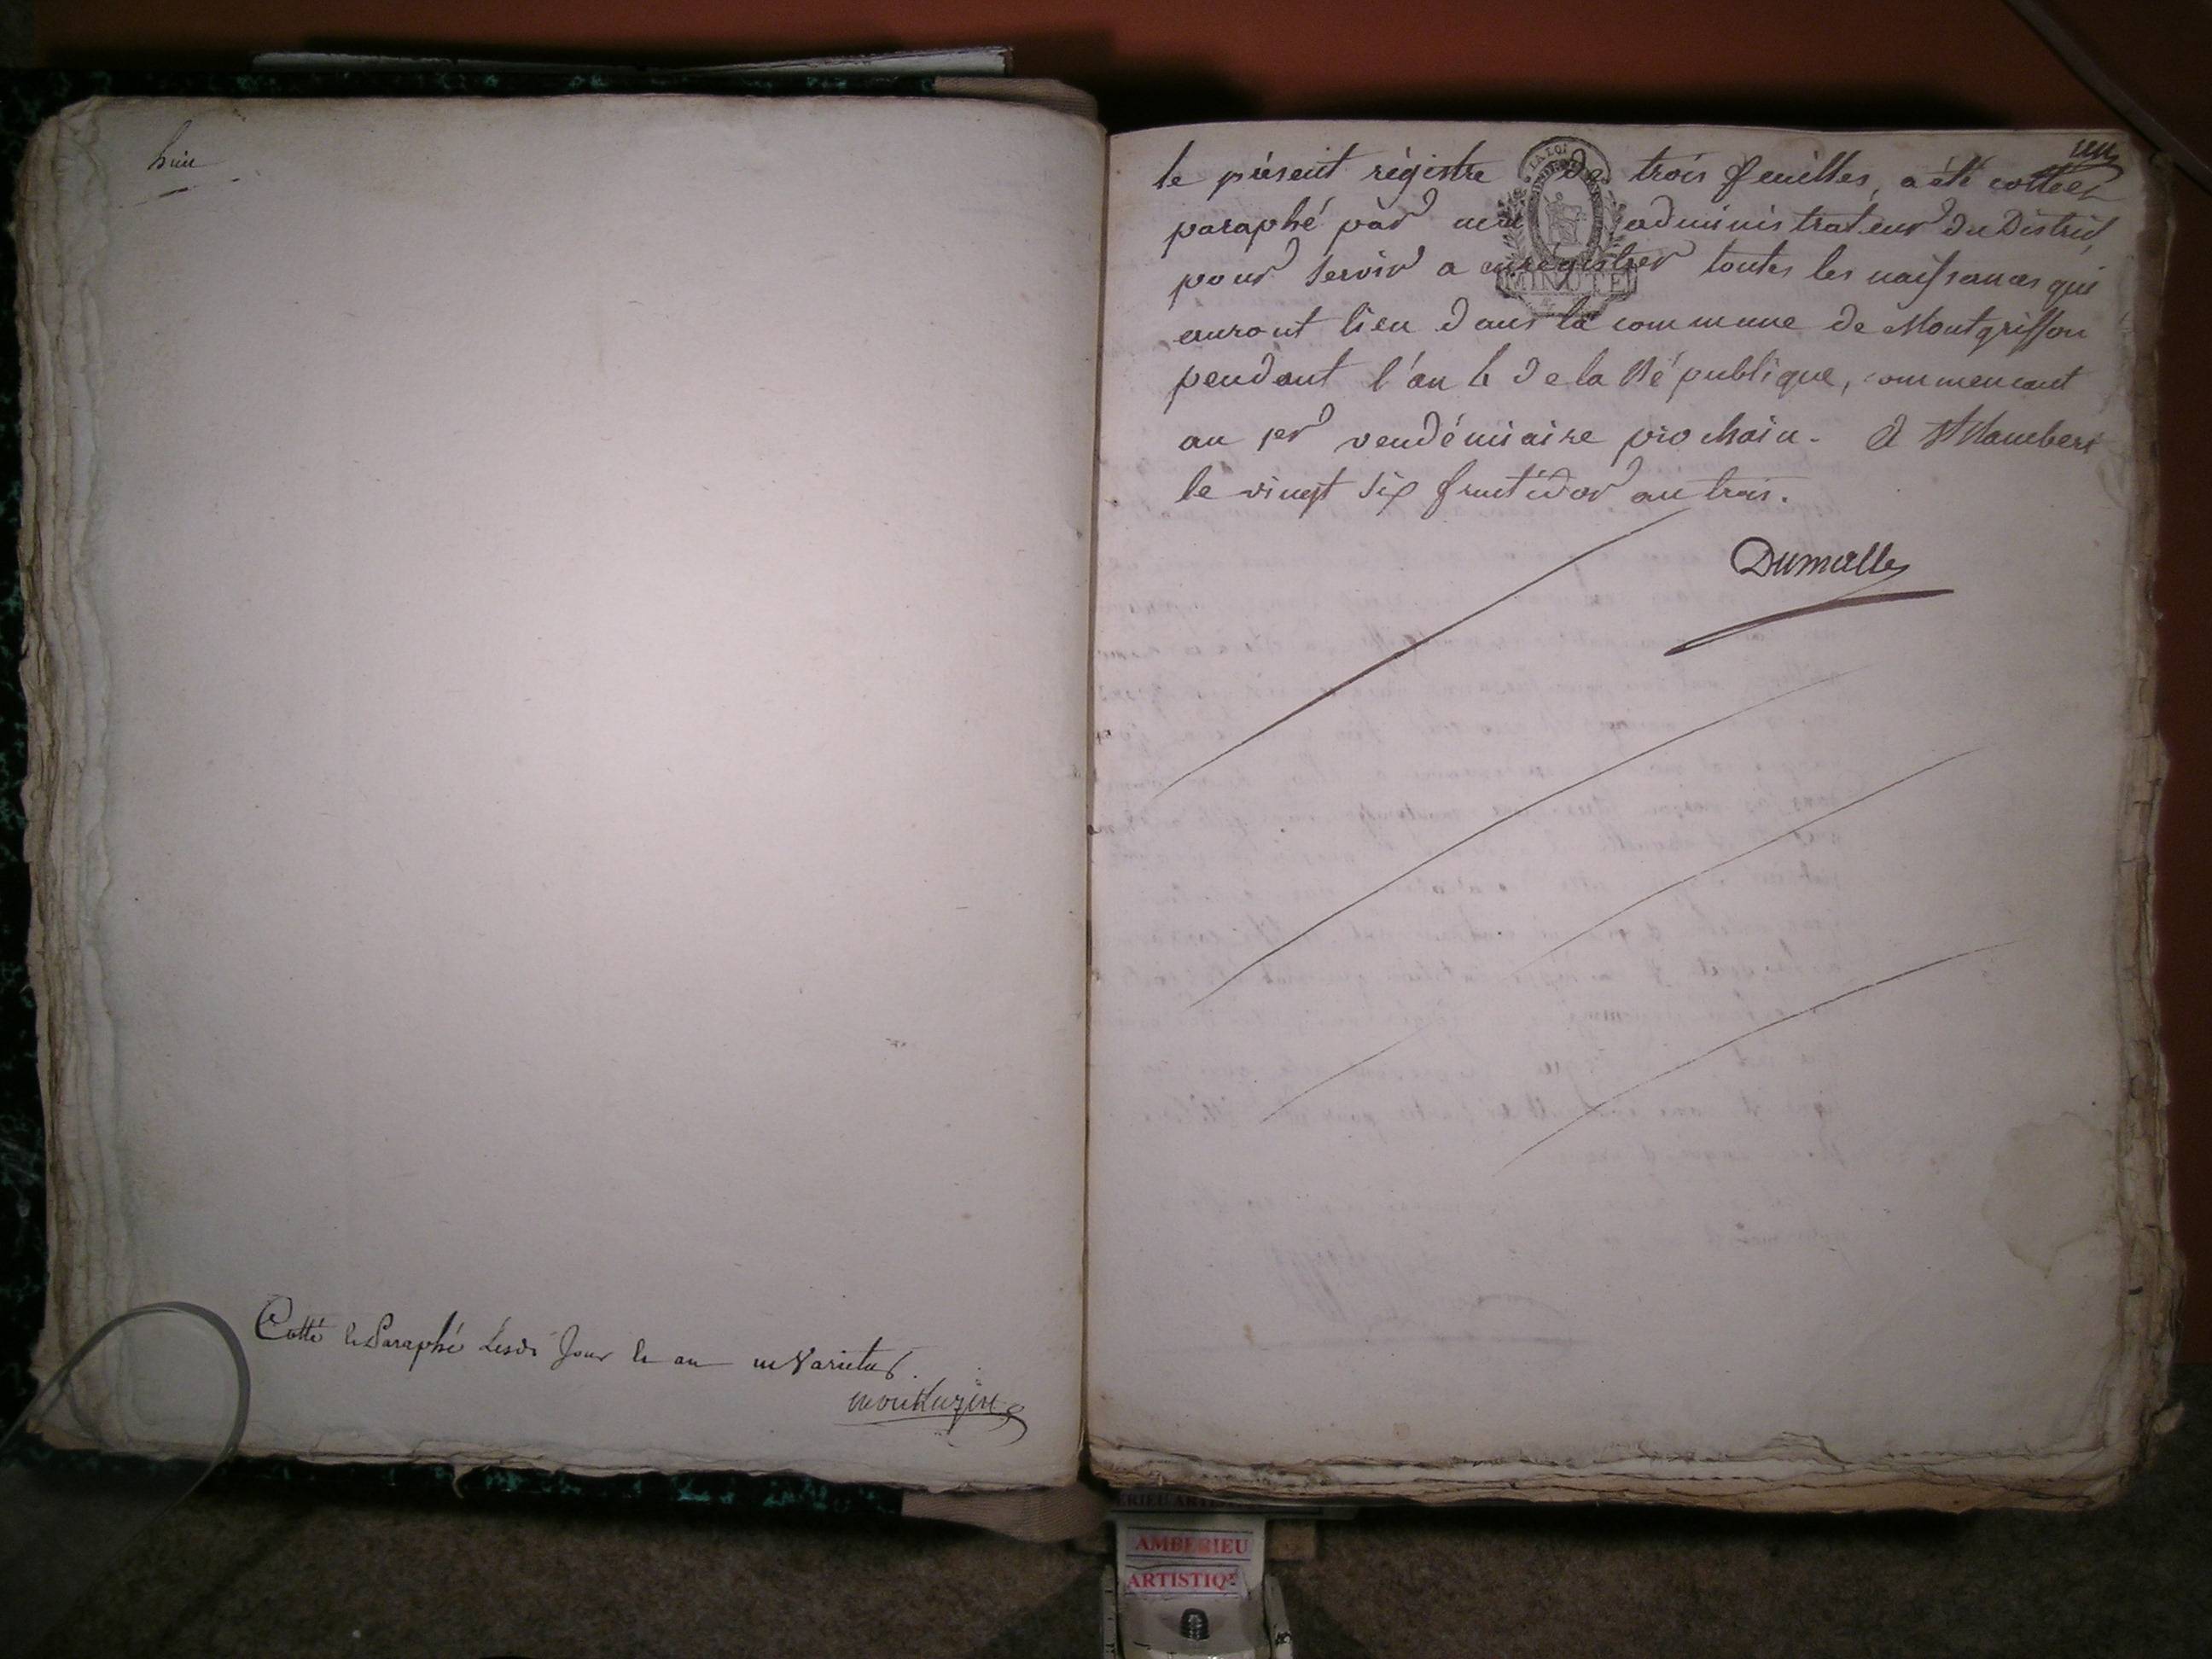 huit
Cotté et Paraphé Lesdi Jour et an ne Varietur.
un
le présent régistre de trois feuilles, a été cotté et
paraphé par moi administrateur du District
pour servir a enrégistrer toutes les naissances qui
auront lieu dans la commune de Montgriffon
pendant l'an 4 de la République, commencant
au 1er vendémiaire prochain. A St Rambert
le vingt six fructidor an trois.
LA LOI
MINUTE
AMBERIEU
ARTISTIQUE